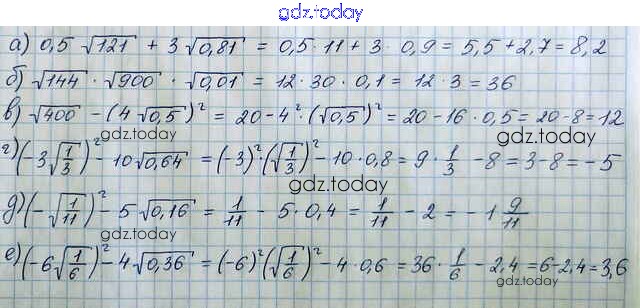 gdz.today
а) 0,5 √121 + 3 √0,81 = 0,5 · 11 + 3 · 0,9 = 5,5 + 2,7 = 8,2
б) √144 · √900 · √0,01 = 12 · 30 · 0,1 = 12 · 3 = 36
в) √400 - (4 √0,5)² = 20 - 4² · (√0,5)² = 20 - 16 · 0,5 = 20 - 8 = 12
gdz.today
gdz.today
г) (-3 √1/3)² - 10 √0,64 = (-3)² · (√1/3)² - 10 · 0,8 = 9 · 1/3 - 8 = 3 - 8 = -5
gdz.today
д) (-√1/11)² - 5 √0,16 = 1/11 - 5 · 0,4 = 1/11 - 2 = -1 9/11
gdz.today
gdz.today
е) (-6 √1/6)² - 4 √0,36 = (-6)² (√1/6)² - 4 · 0,6 = 36 · 1/6 - 2,4 = 6 - 2,4 = 3,6